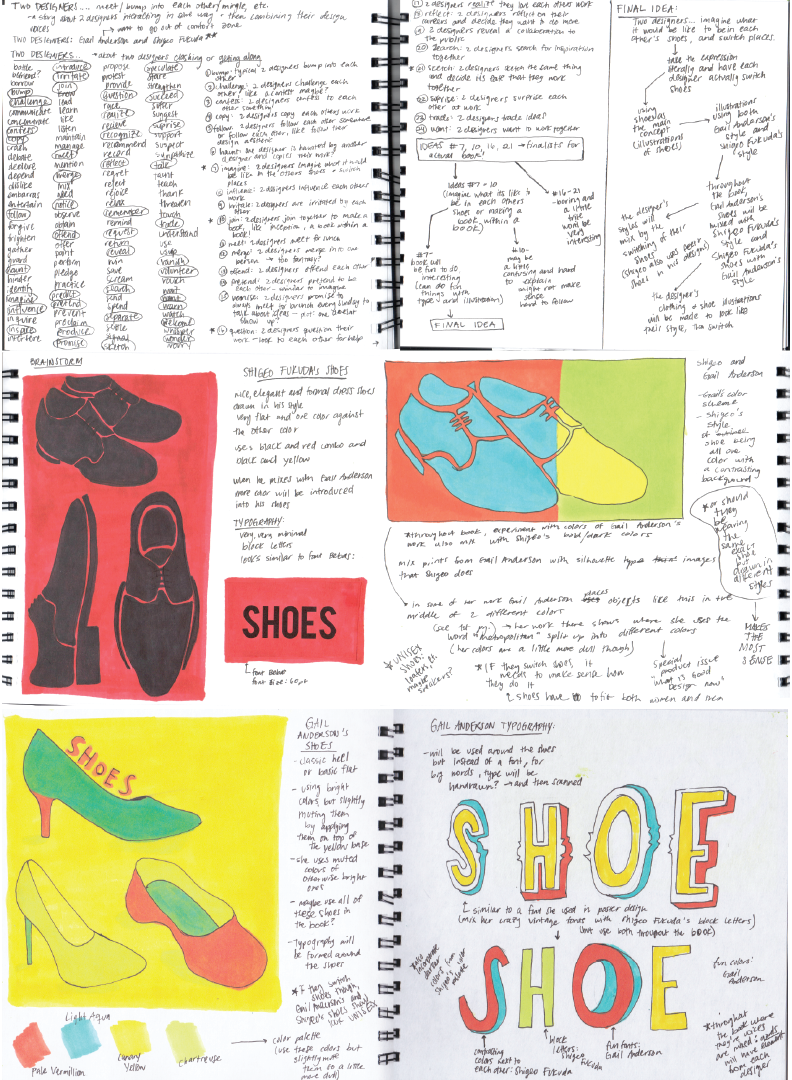 TWO DESIGNERS.... meet / bump into each other / mingle, etc.
→ story about 2 designers interacting in one way - then combining their design
voices
want to go out of comfort zone
TWO DESIGNERS: Gail Anderson and Shigeo Fukuda **
TWO DESIGNERS.... → about two designers clashing or getting along
battle
befriend?
borrow
bump
challenge
communicate
concentrate
confess
copy
crash
debate
decorate
depend
dislike
embarrass
entertain
follow
forgive
frighten
gather
guard
haunt
hinder
identify
imagine
influence
inquire
inspire
interfere
introduce
irritate
join
know
lead
learn
like
listen
maintain
manage
meet
mention
merge
mix
need
notice
observe
obtain
offend
offer
paint
perform
pledge
practice
predict
pretend
prevent
proclaim
produce
promise
propose
protest
provide
question
race
realize
receive
recognize
recommend
record
reflect
regret
reject
rejoice
relax
remember
remind
request
return
reveal
ruin
save
scream
search
send
separate
settle
signal
sketch
speculate
stare
strengthen
succeed
suffer
suggest
suprise
support
suspect
sympathize
talk
taunt
teach
thank
threaten
touch
trade
understand
use
vanish
volunteer
vouch
want
warn
watch
welcome
whisper
wonder
worry
① bump: typical 2 designers bump into each
other
② challenge: 2 designers challenge each
other, like a contest maybe?
③ confess: 2 designers confess to each
other something!
④ copy: 2 designers copy each others work
⑤ follow: 2 designers follow each other somewhere
or follow each other, like follow their
design aesthetic
⑥ haunt: the designer is haunted by another
designer and copies their work?
⑦ imagine: 2 designers imagine what it would
be like in the others shoes & switch
places
⑧ influence: 2 designers influence each others
work
⑨ irritate: 2 designers are irritated by each
other
⑩ join: 2 designers join together to make a
book, like inception, a book within a
book!
meet: 2 designers meet for lunch
merge: 2 designers merge into one
→ too fantasy?
offend: 2 designers offend each other
pretend: 2 designers pretend to be
each other - similar to imagine
promise: 2 designers promise to
always meet for brunch every sunday to
talk about ideas - plot: one doesnt
show up?
* ⑯ question: 2 designers question their
work - look to each other for help
⑰ 2 designers realize they love each others work
reflect: 2 designers reflect on their
careers and decide they want to do more
2 designers reveal a collaboration to
the public
search: 2 designers search for inspiration
together
sketch: 2 designers sketch the same thing
and decide its fate that they work
together
suprise: 2 designers surprise each
other at work
trade: 2 designers trade ideas
want: 2 designers want to work together
IDEAS # 7, 10, 16, 21 → finalists for
actual book!
Ideas #7-10
(imagine what its like to
be in each others
shoes or making a
book within a
book)
*16-21
- boring and
a little
trite
wont be
very
interesting
#7-
book will
be fun to do,
interesting
(can do fun
things with
type and illustration)
#10-
may be
a little
confusing and hard
to explain
might not make
sense
hard to follow
FINAL IDEA
FINAL IDEA:
Two designers... imagine what
it would be like to be in each
other's shoes, and switch places.
take the expression
literally and have each
designer actually switch
shoes
using
shoes as
the main
concept
(illustrations
of shoes)
illustrations
using both
Gail Anderson's
style and
Shigeo Fukuda's
style
the designer's
styles will
mix by the
switching of their
shoes
(shigeo also uses
shoes in his designs)
throughout
the book,
Gail
Anderson's
shoes will be
mixed with
Shigeo Fukuda's
style and
Shigeo
Fukuda's shoes
with Gail
Anderson's style
the designer's
clothing & shoe illustrations
will be made to look like
their style, then switch
BRAINSTORM
SHIGEO FUKUDA'S SHOES
nice, elegant and formal dress shoes
drawn in his style
very flat and one color against
the other color
uses black and red combo and
black and yellow
when he mixes with Gail Anderson
more color will be introduced
into his shoes
TYPOGRAPHY:
very, very minimal
block letters
looks similar to font Bebas:
SHOES
font Bebas
font size: 60 pt
Shigeo and
Gail Anderson
- Gail's color
scheme
- Shigeo's
style
of
shoe being
all one
color with
a contrasting
background
*throughout book, experiment with colors of Gail Anderson's
work also mix with Shigeo's bold/dark colors
mix prints from Gail Anderson with silhouette type images
that Shigeo does
*or should
they
be
wearing
the
same
exact
shoe
but
drawn in
different
styles
MAKES
THE
MOST
SENSE
→ in some of her work Gail Anderson places objects like this in the
middle of 2 different colors
(see tot pg.) → her work there shows where she uses the
word "metropolitan" split up into different colors
(her colors are a little more dull though)
*UNISEX
SHOES:
loafers, etc.
maybe
sneakers?
* IF they switch shoes, it
needs to make sense how
they do it
shoes have to fit both women and men
Special
product issue
"What is Good
Design now"
SHOES
GAIL
ANDERSON'S
SHOES
- classic heel
or basic flat
- using bright
colors, but slightly
muting them
by applying
them on top of
the yellow base
- she uses muted
colors of
otherwise bright
ones
- maybe use all of
these shoes in
the book?
- Typography will
be formed around
the shoes
* IF they switch
shoes though,
Gail Anderson's and
Shigeo's shoes should
be UNISEX
Light Aqua
Pale Vermillion
Canary
Yellow
chartreuse
color palette
(use these colors but
slightly mute
them so a little
more dull)
GAIL ANDERSON TYPOGRAPHY:
- will be used around the shoes
but instead of a font, for
big words, type will be
handrawn? → and then scanned
SHOE
similar to a font she used in poster design
(mix her crazy vintage fonts with Shigeo Fukuda's block letters)
but use both throughout the book)
SHOE
*also
incorporate
darker
colors from
Shigeo's work
fun colors:
Gail
Anderson
contrasting
colors next to
each other: Shigeo Fukuda
block
letters:
Shigeo
Fukuda
fun fonts:
Gail Anderson
*throughout
the book where
they're voices
are mixed: words
will have
from each
designer